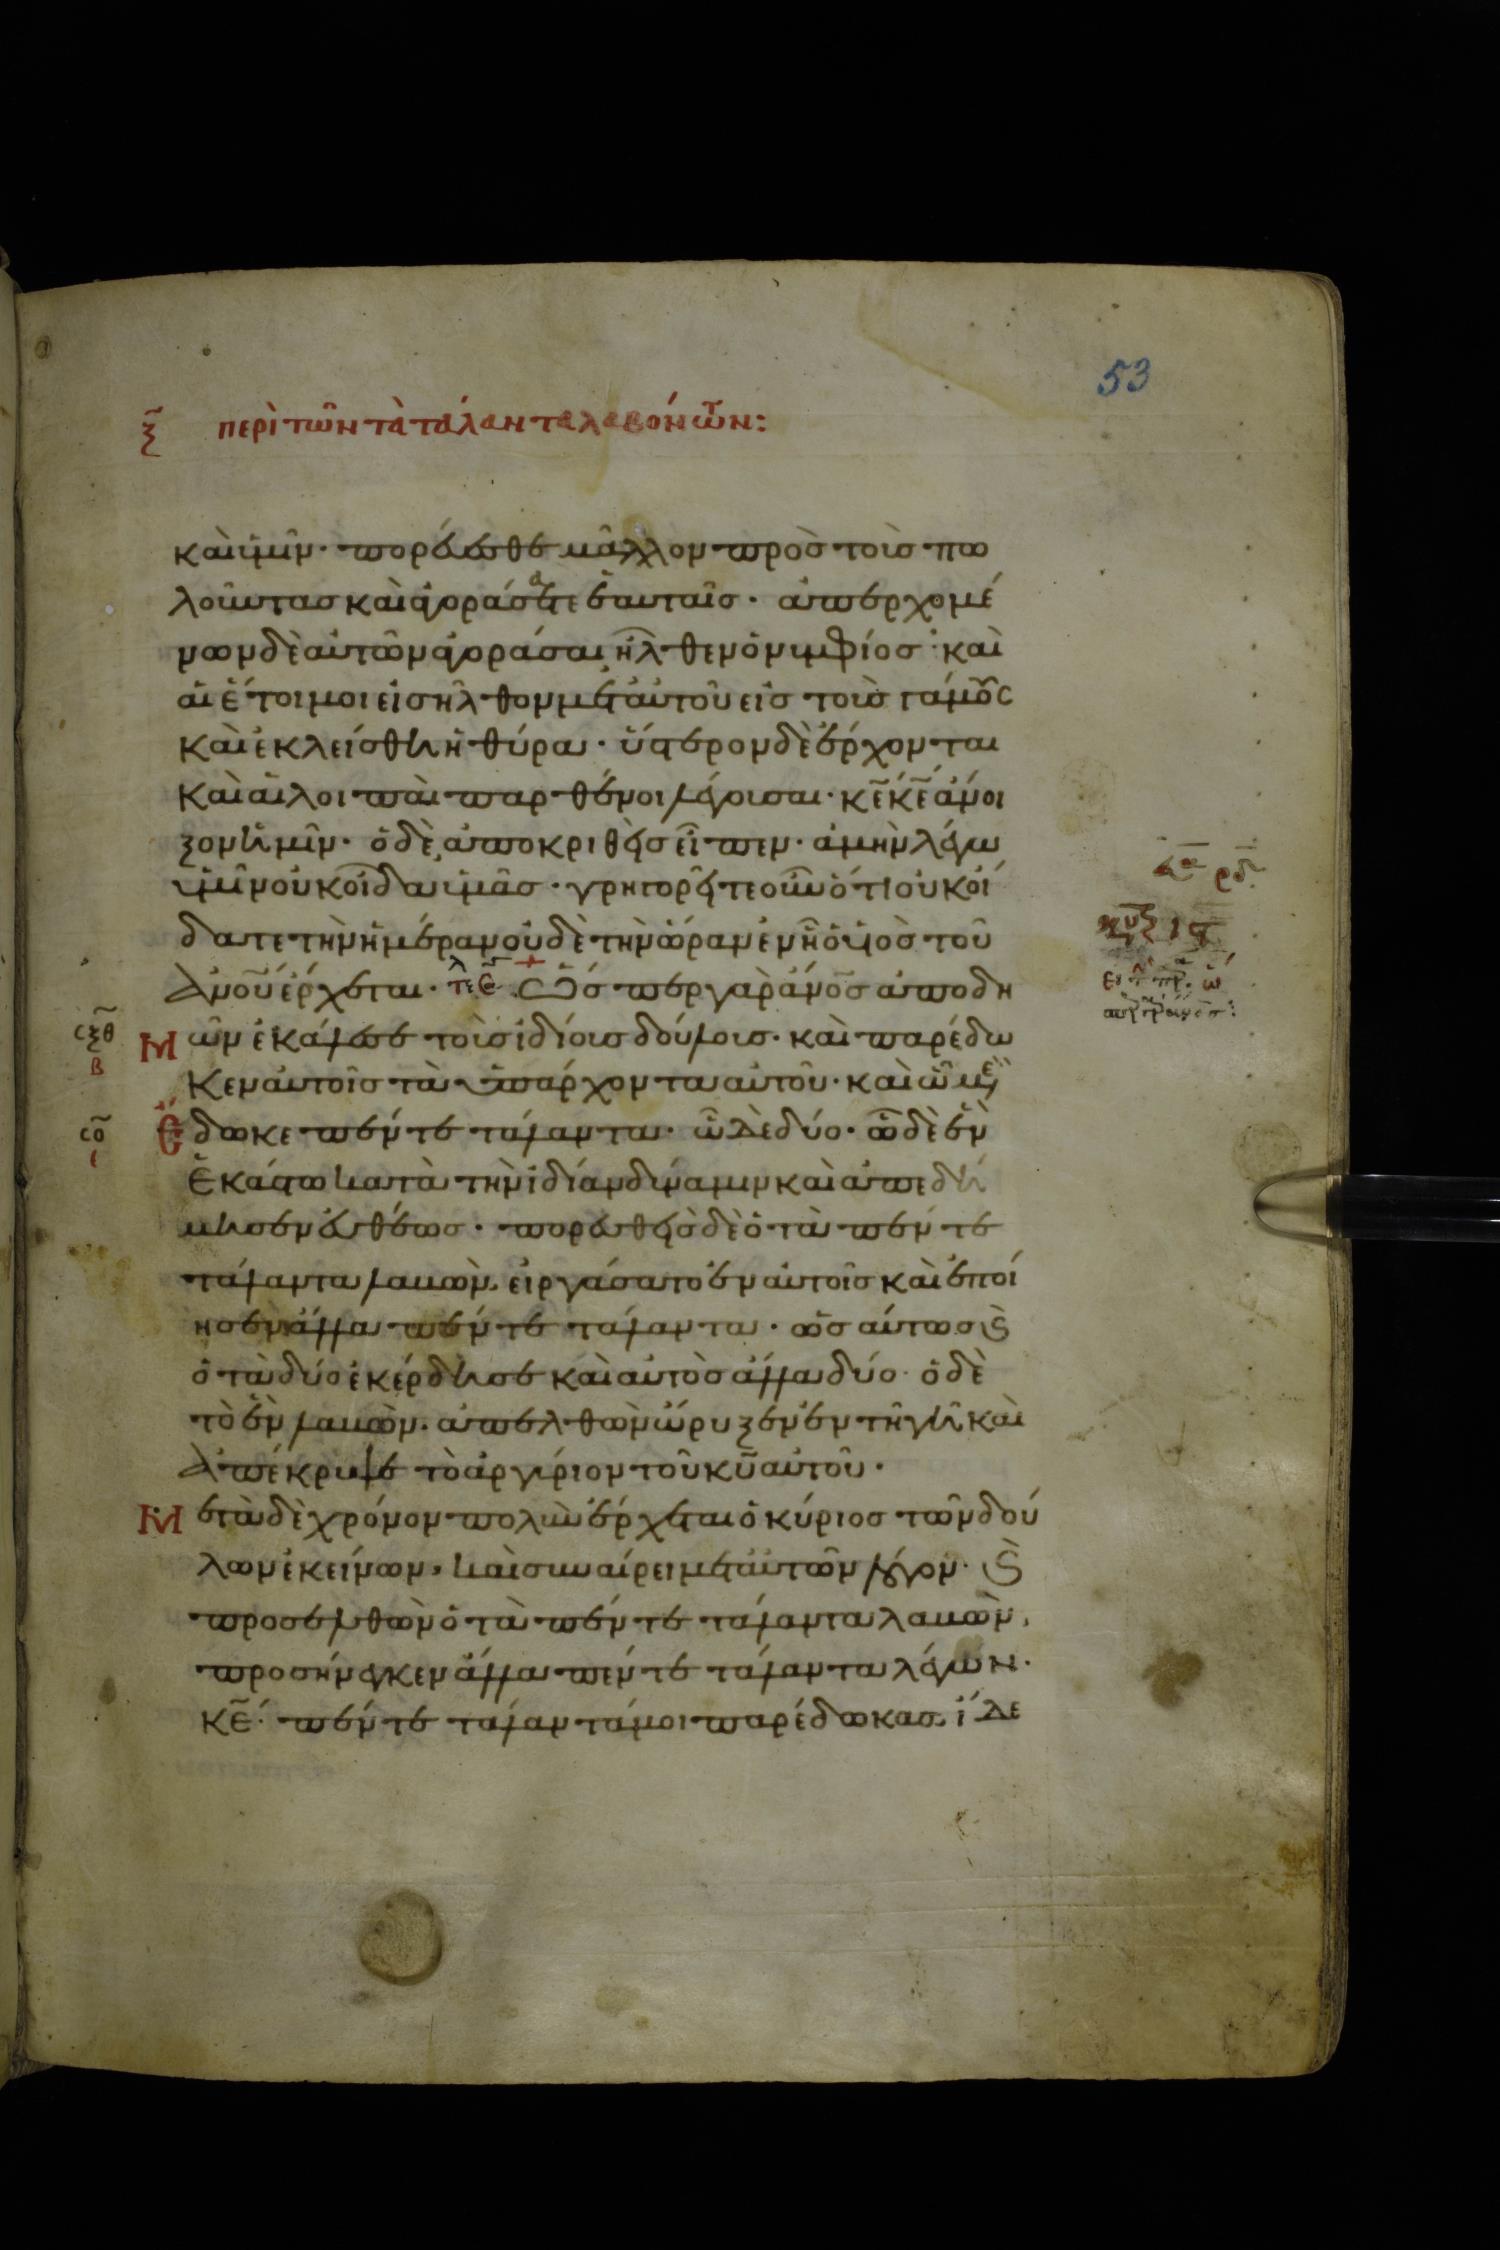 53
ξ̄ περὶ τῶν τὰ τάλαντα λαβόντων:
καὶ ὑμῖν· πορεύεσθε μᾶλλον πρὸς τοὺς πω
λοῦντας καὶ ἀγοράσατε ἑαυταῖς· ἀπερχομέ
νων δὲ αὐτῶν ἀγοράσαι ἦλθεν ὁ νυμφίος· καὶ
αἱ ἕτοιμοι εἰσῆλθον μετ' αὐτοῦ εἰς τοὺς γάμους
καὶ ἐκλείσθη ἡ θύρα· ὕστερον δὲ ἔρχονται
καὶ αἱ λοιπαὶ παρθένοι λέγουσαι· κ̄ε κ̄ε ἄνοι
ξον ἡμῖν· ὁ δὲ ἀποκριθεὶς εἶπεν· ἀμὴν λέγω
ὑμῖν οὐκ οἶδα ὑμᾶς· γρηγορεῖτε οὖν ὅτι οὐκ οἴ
δατε τὴν ἡμέραν οὐδὲ τὴν ὥραν ἐν ᾗ ὁ υἱὸς τοῦ
ἀν̄ου ἔρχεται· τε Ὥσπερ γὰρ ἄν̄ος ἀποδη
σξθ β
μῶν ἐκάλεσε τοὺς ἰδίους δούλους· καὶ παρέδω
κεν αὐτοῖς τὰ ὑπάρχοντα αὐτοῦ· καὶ ᾧ μὲν
σο ι
ἔδωκε πέντε τάλαντα· ᾧ δὲ δύο· ᾧ δὲ ἓν
ἑκάστω κατὰ τὴν ἰδίαν δύναμιν καὶ ἀπεδή
μησεν εὐθέως· πορευθεὶς δὲ ὁ τὰ πέντε
τάλαντα λαβὼν, εἰργάσατο ἐν αὐτοῖς καὶ ἐποί
ησεν ἄλλα πέντε τάλαντα· ὡσαύτως ϗ
ὁ τὰ δύο ἐκέρδησε καὶ αὐτὸς ἄλλα δύο· ὁ δὲ
τὸ ἓν λαβὼν· ἀπελθὼν ὤρυξεν ἐν τῇ γῇ καὶ
ἀπέκρυψε τὸ ἀργύριον τοῦ κ̄υ αὐτοῦ·
Μετὰ δὲ χρόνον πολὺν ἔρχεται ὁ κύριος τῶν δού
λων ἐκείνων, καὶ συναίρει μετ' αὐτῶν λόγον· ϗ
προσελθὼν ὁ τὰ πέντε τάλαντα λαβὼν,
προσήνεγκεν ἄλλα πέντε τάλαντα λέγων·
κ̄ε· πέντε τάλαντά μοι παρέδωκας, ἴδε